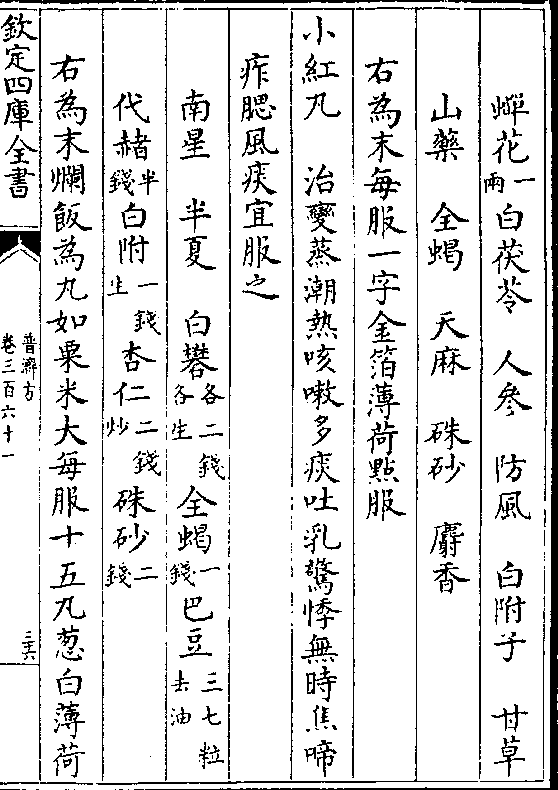 蟬花一兩白茯苓 人參 防風 白附子 甘草
山藥 全蝎 天麻 硃砂 麝香
右為末每服一字金箔薄荷點服
小紅丸 治變蒸潮熱咳嗽多痰吐乳驚悸無時焦啼
痄腮風痰宜服之
南星 半夏 白礬各二錢各生全蝎一錢巴豆三七粒去油
代赭半錢白附一錢生杏仁二二錢炒硃砂二錢
右為末爛飯為丸如粟米大每服十五丸葱白薄荷
欽定四庫全書
普濟方
卷三百六十一
三六